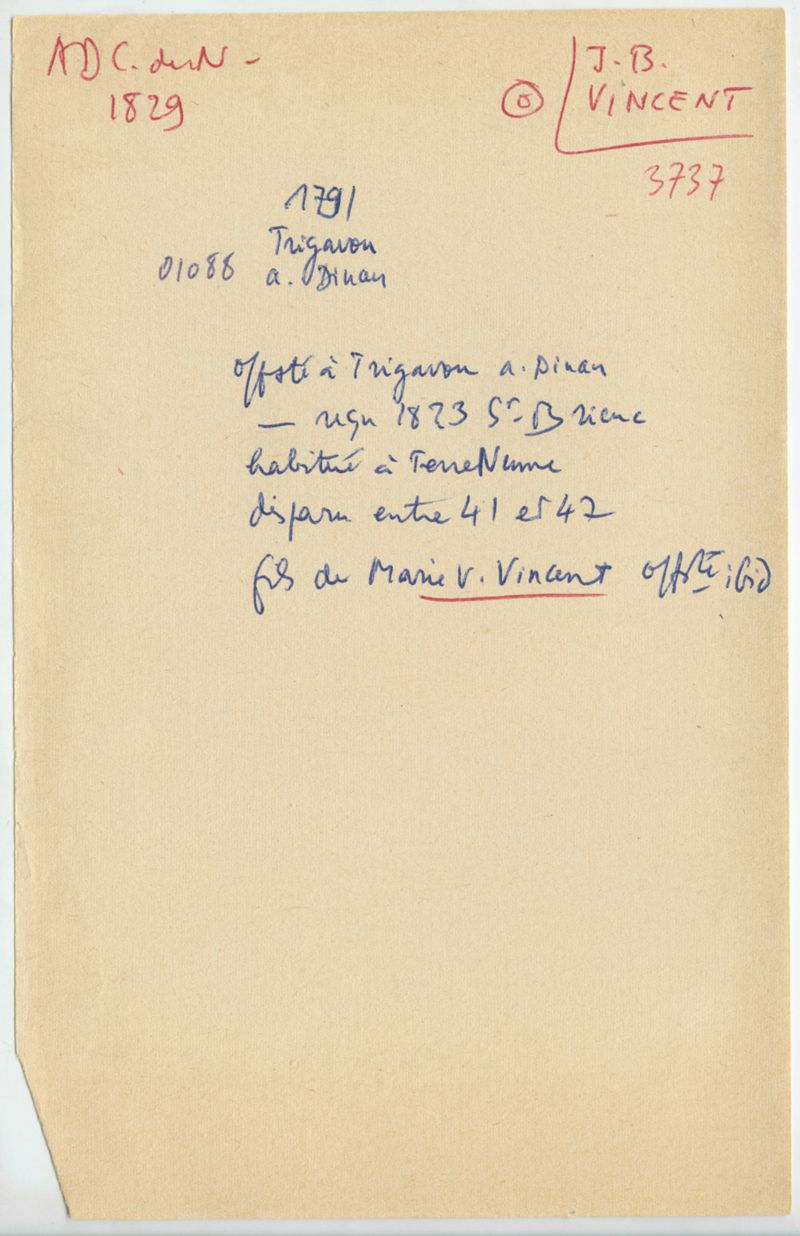 ADC. du N -
1829
J. B.
VINCENT
3737
1791
Trigavou
01088 a. Dinan
offsté à Trigavou a. Dinan
— reçu 1823 St-Brieuc
habitué à TerreNeuve
disparu entre 41 et 47
fils de Marie V. Vincent offsté ibid